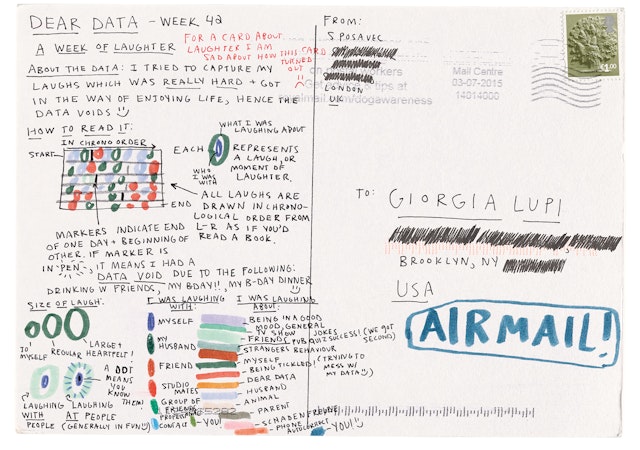 DEAR DATA - WEEK 42
A WEEK OF LAUGHTER
FOR A CARD ABOUT
LAUGHTER I AM
SAD ABOUT HOW THIS CARD
TURNED
OUT
ABOUT THE DATA: I TRIED TO CAPTURE MY
LAUGHS WHICH WAS REALLY HARD + GOT
IN THE WAY OF ENJOYING LIFE, HENCE THE
DATA VOIDS
HOW TO READ IT:
IN CHRONO ORDER
START
END
WHAT I WAS
LAUGHING ABOUT
EACH
WHO
I WAS
WITH
REPRESENTS
A LAUGH, OR
MOMENT OF
LAUGHTER.
ALL LAUGHS ARE
DRAWN IN CHRONO-
LOGICAL ORDER FROM
L-R AS IF YOU'D
READ A BOOK.
MARKERS INDICATE END
OF ONE DAY + BEGINNING OF
OTHER. IF MARKER IS
IN "PEN", IT MEANS I HAD A
DATA VOID DUE TO THE FOLLOWING:
DRINKING W FRIENDS, MY BDAY!!, MY B-DAY DINNER
SIZE OF LAUGH:
TO
MYSELF
REGULAR
LARGE +
HEARTFELT!
A DOT
MEANS
YOU
KNOW
THEM
LAUGHING
WITH
PEOPLE
LAUGHING
AT PEOPLE
(GENERALLY IN FUN)
I WAS LAUGHING
WITH:
MYSELF
MY
HUSBAND
FRIEND
STUDIO
MATES
GROUP OF
FRIENDS
CONTACT
YOU!
I WAS LAUGHING
ABOUT:
BEING IN A GOOD
MOOD, GENERAL
TV SHOW JOKES
FRIENDS PUB QUIZ SUCCESS! (WE GOT
SECOND)
STRANGERS BEHAVIOUR
MYSELF
BEING TICKLED! (TRYING TO
MESS W
MY DATA)
DEAR DATA
HUSBAND
ANIMAL
PARENT
SCHADENFREUDE
PHONE AUTOCORRECT
YOU!
FROM:
S POSAVEC
LONDON
UK
Mail Centre
03-07-2015
14014000
£1.00
TO: GIORGIA LUPI
BROOKLYN, NY
USA
AIRMAIL!